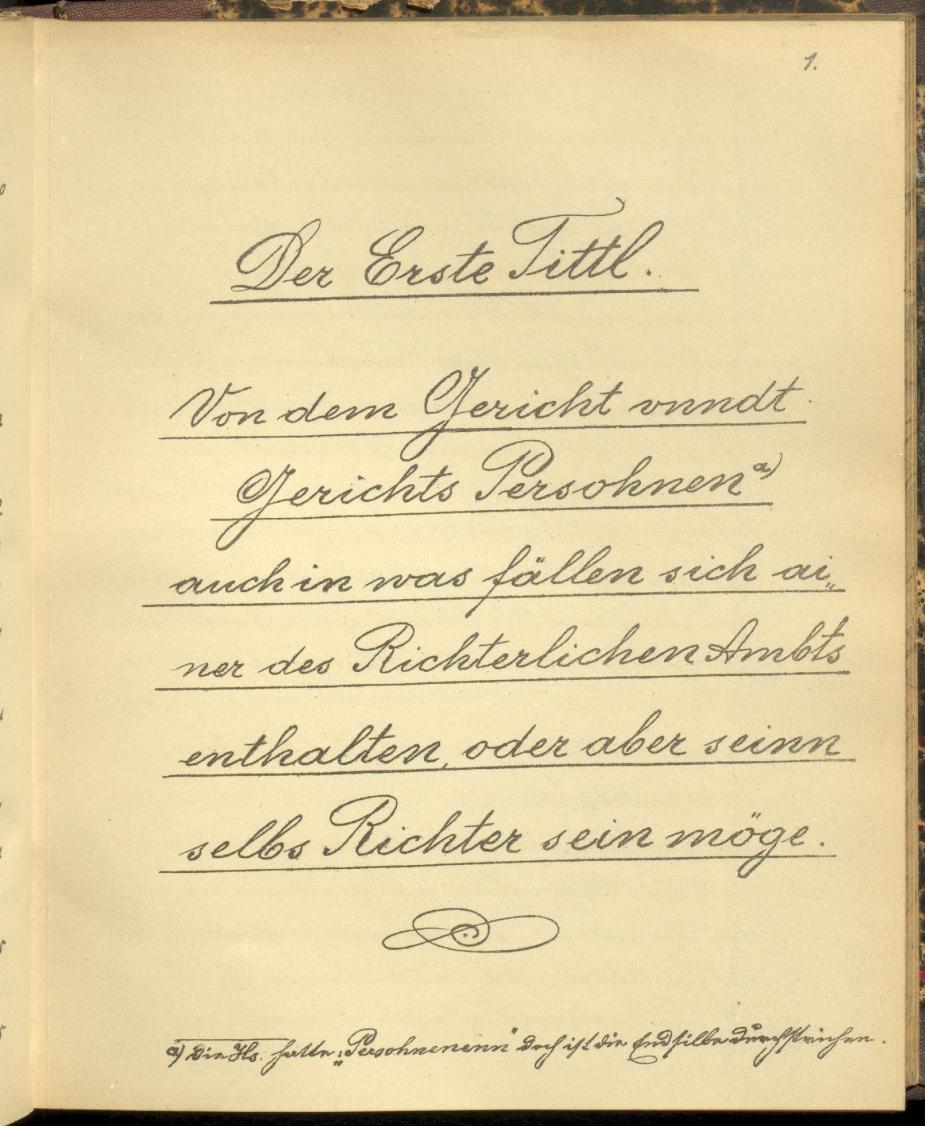 1.
Der Erste Tittl.
Von dem Gericht vnndt
Gerichts Persohnen a)
auch in was fällen sich ai„
ner des Richterlichen Ambts
enthalten, oder aber seinn
selbs Richter sein möge.
a) Die Hs. hatte: „Persohnenenn" doch ist die Endsilbe durchstrichen.